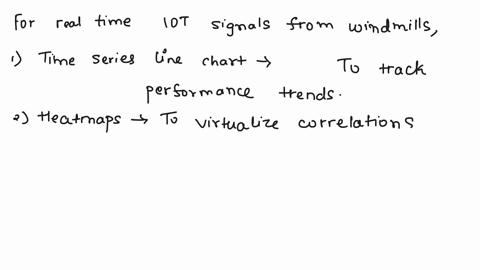 For real time IOT signals from windmills,
1) Time series line chart → To track
performance trends.
2) Heatmaps → To virtualize correlations